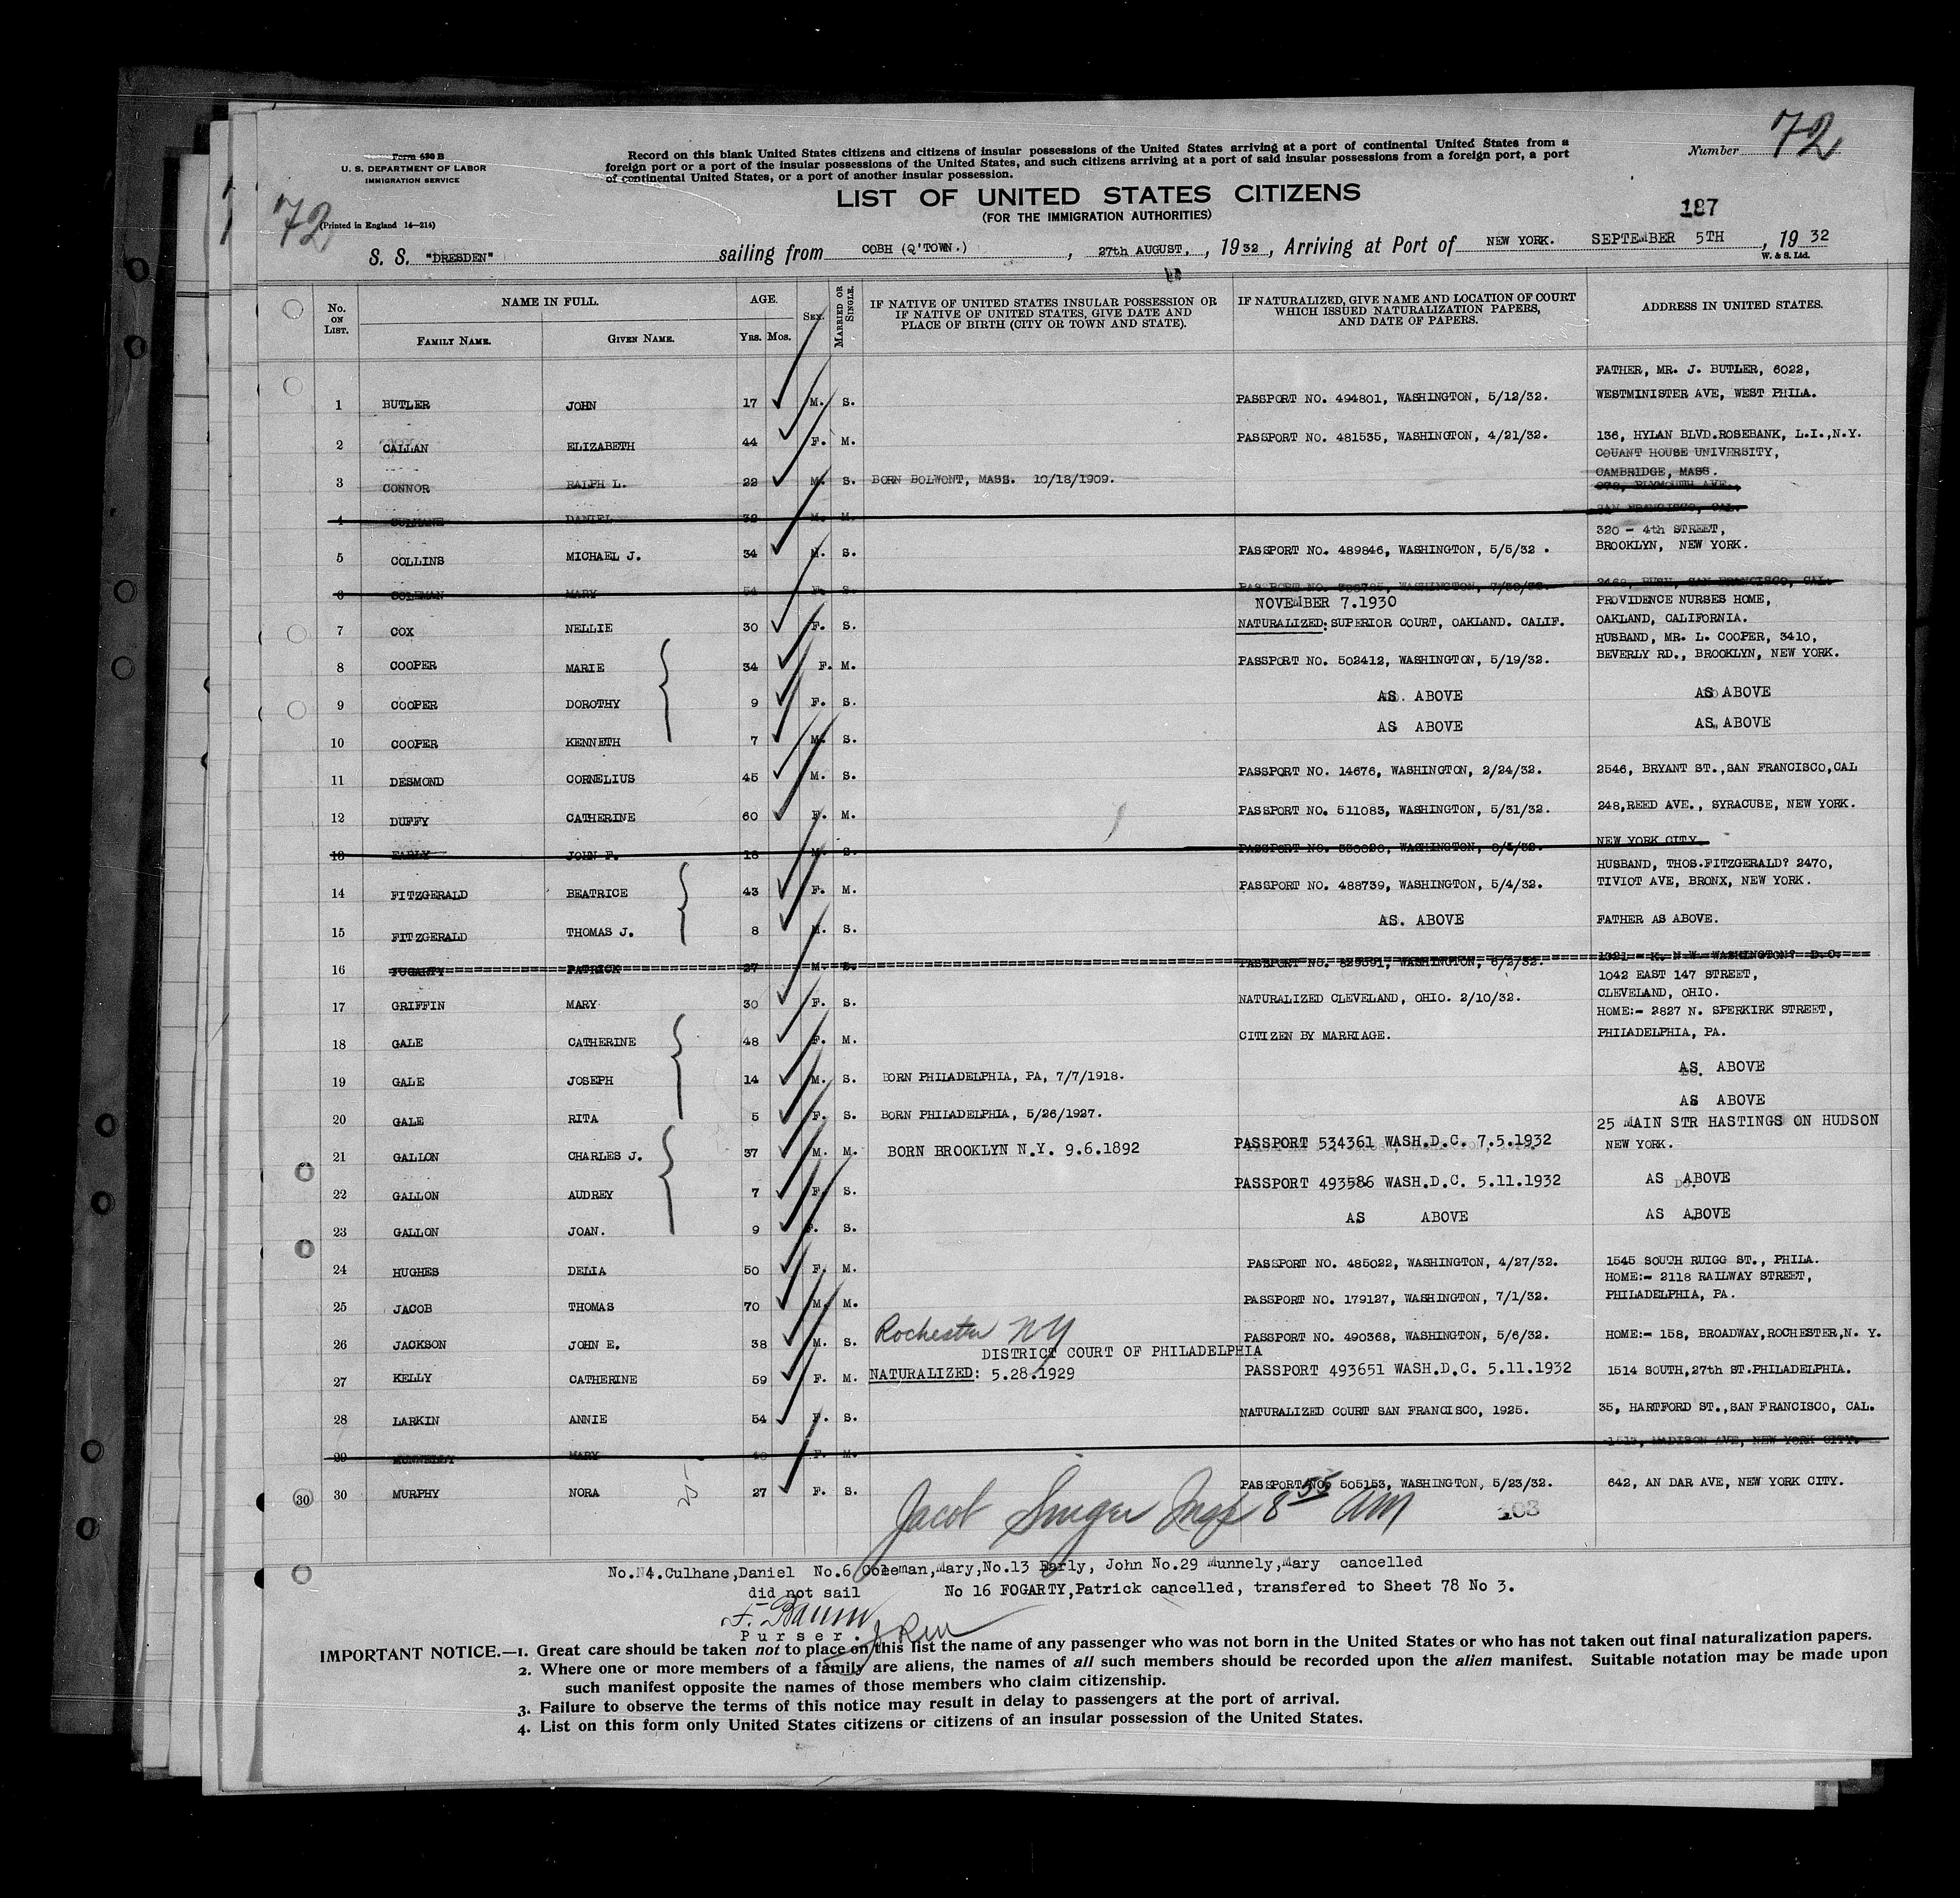 72
Form 630 B
U. S. DEPARTMENT OF LABOR
IMMIGRATION SERVICE
(Printed in England 14—214)
72
Record on this blank United States citizens and citizens of insular possessions of the United States arriving at a port of continental United States from a
foreign port or a port of the insular possessions of the United States, and such citizens arriving at a port of said insular possessions from a foreign port, a port
of continental United States, or a port of another insular possession.
Number
LIST OF UNITED STATES CITIZENS
(FOR THE IMMIGRATION AUTHORITIES)
187
S. S. "DRESDEN" sailing from COBH (Q'TOWN.) , 27th AUGUST, , 1932, Arriving at Port of NEW YORK. SEPTEMBER 5TH , 1932
W. & S. Ltd.
No. ON LIST. NAME IN FULL. FAMILY NAME. GIVEN NAME. AGE. YRS. MOS. SEX. MARRIED OR SINGLE. IF NATIVE OF UNITED STATES INSULAR POSSESSION OR IF NATIVE OF UNITED STATES, GIVE DATE AND PLACE OF BIRTH (CITY OR TOWN AND STATE). IF NATURALIZED, GIVE NAME AND LOCATION OF COURT WHICH ISSUED NATURALIZATION PAPERS, AND DATE OF PAPERS. ADDRESS IN UNITED STATES.
FATHER, MR. J. BUTLER, 6022,
1 BUTLER JOHN 17 M. S. PASSPORT NO. 494801, WASHINGTON, 5/12/32. WESTMINISTER AVE, WEST PHILA.
2 CALLAN ELIZABETH 44 F. M. PASSPORT NO. 481535, WASHINGTON, 4/21/32. 136, HYLAN BLVD.ROSEBANK, L.I.,N.Y.
COUANT HOUSE UNIVERSITY,
CAMBRIDGE, MASS.
3 CONNOR RALPH L. 22 M. S. BORN BOLWONT, MASS. 10/18/1909.
978, PLYMOUTH AVE.,
SAN FRANCISCO, CAL.
4 CULHANE DANIEL 32 M. M.
320 - 4th STREET,
5 COLLINS MICHAEL J. 34 M. S. PASSPORT NO. 489846, WASHINGTON, 5/5/32 . BROOKLYN, NEW YORK.
6 COLEMAN MARY 54 F. S. 2468, BUSH, SAN FRANCISCO, CAL.
NOVEMBER 7.1930 PROVIDENCE NURSES HOME,
7 COX NELLIE 30 F. S. NATURALIZED: SUPERIOR COURT, OAKLAND. CALIF. OAKLAND, CALIFORNIA.
HUSBAND, MR. L. COOPER, 3410,
8 COOPER MARIE 34 F. M. PASSPORT NO. 502412, WASHINGTON, 5/19/32. BEVERLY RD., BROOKLYN, NEW YORK.
9 COOPER DOROTHY 9 F. S. AS. ABOVE AS ABOVE
10 COOPER KENNETH 7 M. S. AS ABOVE AS ABOVE
11 DESMOND CORNELIUS 45 M. S. PASSPORT NO. 14676, WASHINGTON, 2/24/32. 2546, BRYANT ST.,SAN FRANCISCO,CAL
12 DUFFY CATHERINE 60 F. M. PASSPORT NO. 511083, WASHINGTON, 5/31/32. 248,REED AVE., SYRACUSE, NEW YORK.
13 EARLY JOHN F. 18 M. S. NEW YORK CITY.
HUSBAND, THOS.FITZGERALD? 2470,
14 FITZGERALD BEATRICE 43 F. M. PASSPORT NO. 488739, WASHINGTON, 5/4/32. TIVIOT AVE, BRONX, NEW YORK.
15 FITZGERALD THOMAS J. 8 M. S. AS. ABOVE FATHER AS ABOVE.
16 FOGARTY PATRICK 27 M. S. PASSPORT NO. 829591, WASHINGTON, 6/2/32. 1321 - K. N.W. WASHINGTON? D.C.
1042 EAST 147 STREET,
17 GRIFFIN MARY 30 F. S. NATURALIZED CLEVELAND, OHIO. 2/10/32. CLEVELAND, OHIO.
HOME:- 2827 N. SPERKIRK STREET,
18 GALE CATHERINE 48 F. M. CITIZEN BY MARRIAGE. PHILADELPHIA, PA.
19 GALE JOSEPH 14 M. S. BORN PHILADELPHIA, PA, 7/7/1918. AS ABOVE
20 GALE RITA 5 F. S. BORN PHILADELPHIA, 5/26/1927. AS ABOVE
25 MAIN STR HASTINGS ON HUDSON
21 GALLON CHARLES J. 37 M. M. BORN BROOKLYN N.Y. 9.6.1892 PASSPORT 534361 WASH.D.C. 7.5.1932 NEW YORK.
22 GALLON AUDREY 7 F. S. PASSPORT 493586 WASH.D.C. 5.11.1932 AS ABOVE
23 GALLON JOAN. 9 F. S. AS ABOVE AS ABOVE
24 HUGHES DELIA 50 F. M. PASSPORT NO. 485022, WASHINGTON, 4/27/32. 1545 SOUTH RUIGG ST., PHILA.
HOME:- 2118 RAILWAY STREET,
25 JACOB THOMAS 70 M. M. PASSPORT NO. 179127, WASHINGTON, 7/1/32. PHILADELPHIA, PA.
26 JACKSON JOHN E. 38 M. S. Rochester NY PASSPORT NO. 490368, WASHINGTON, 5/6/32. HOME:- 158, BROADWAY,ROCHESTER,N. Y.
DISTRICT COURT OF PHILADELPHIA
27 KELLY CATHERINE 59 F. M. NATURALIZED: 5.28.1929 PASSPORT 493651 WASH.D.C. 5.11.1932 1514 SOUTH,27th ST.PHILADELPHIA.
28 LARKIN ANNIE 54 F. S. NATURALIZED COURT SAN FRANCISCO, 1925. 35, HARTFORD ST.,SAN FRANCISCO, CAL.
29 MUNNELLY MARY F. M. 1513, MADISON AVE, NEW YORK CITY.
30 30 MURPHY NORA 27 F. S. PASSPORT NO. 505153, WASHINGTON, 5/23/32. 642, AN DAR AVE, NEW YORK CITY.
Jacob Singer Insp 8 55 AM
103
No.N4.Culhane,Daniel No.6 Coleman,Mary,No.13 Early, John No.29 Munnely,Mary cancelled
did not sail No 16 FOGARTY,Patrick cancelled, transfered to Sheet 78 No 3.
F. Baum
Purser.
IMPORTANT NOTICE.—1. Great care should be taken not to place on this list the name of any passenger who was not born in the United States or who has not taken out final naturalization papers.
2. Where one or more members of a family are aliens, the names of all such members should be recorded upon the alien manifest. Suitable notation may be made upon
such manifest opposite the names of those members who claim citizenship.
3. Failure to observe the terms of this notice may result in delay to passengers at the port of arrival.
4. List on this form only United States citizens or citizens of an insular possession of the United States.